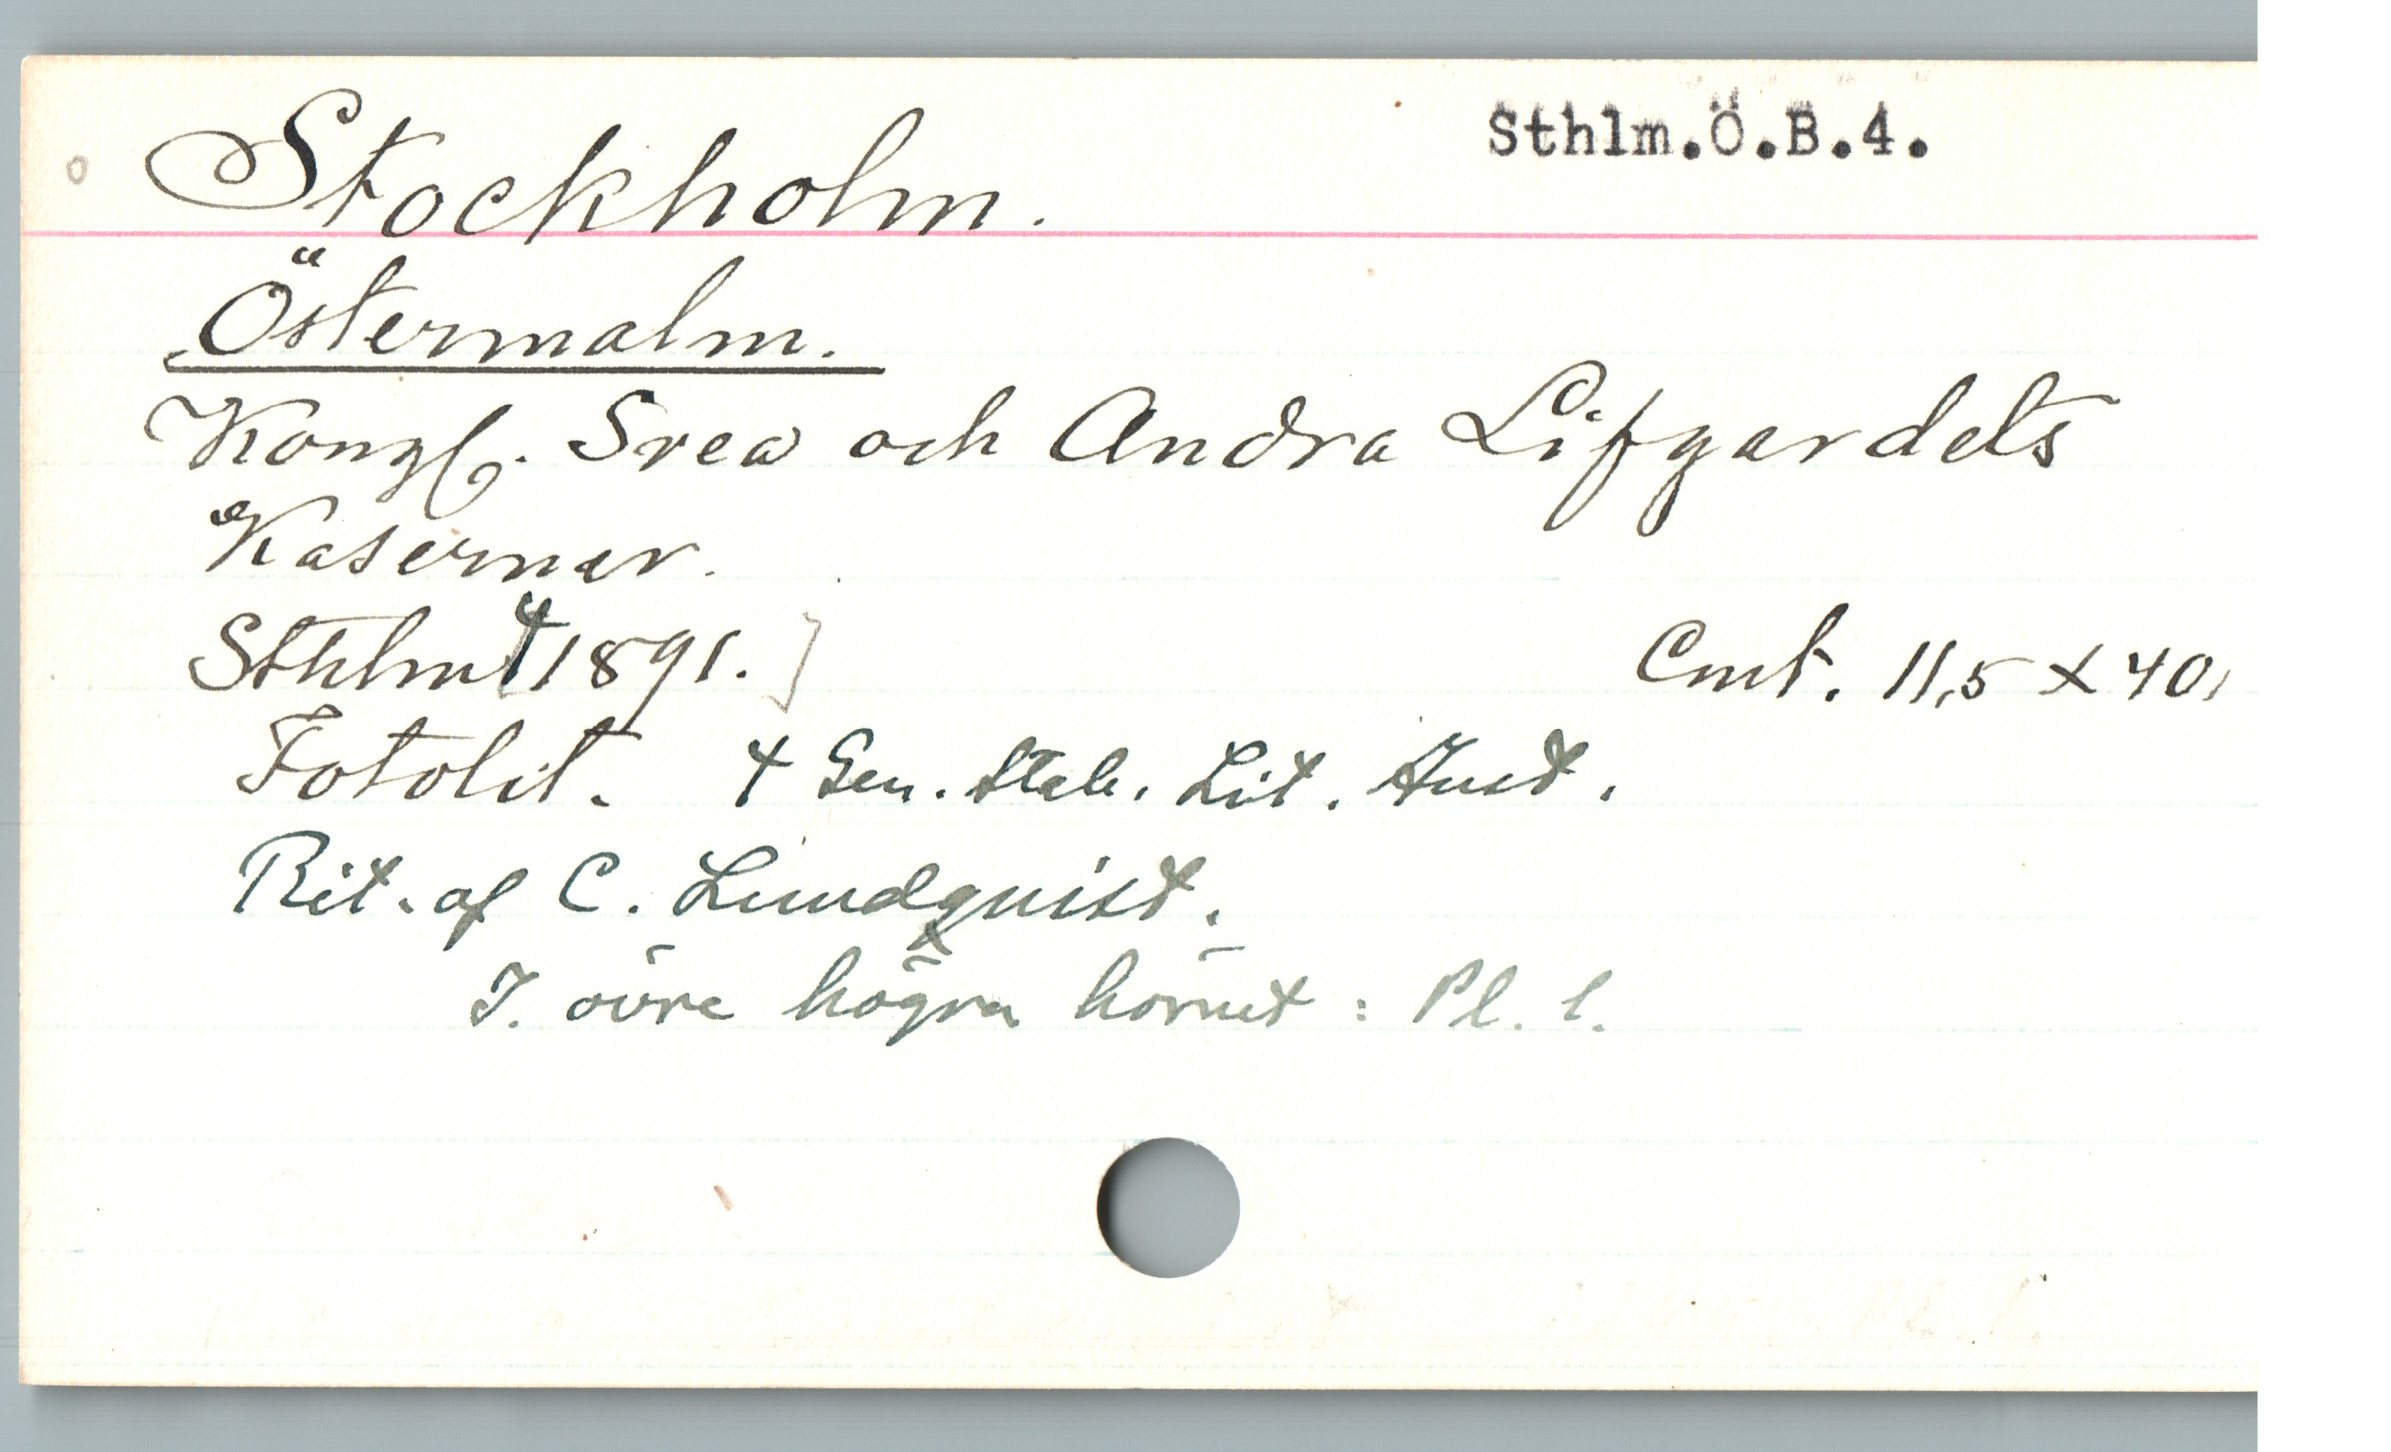 Sthlm.Ö.B.4.
Stockholm.
Östermalm.
Kongl. Svea och Andra Lifgardets
Kaserner.
Sthlm 1891.]
Cmt. 11,5 x 40,
Fotolit. + Gen. Stab. Lit. Inst.
Rit. af C. Lundquist.
I. övre högra hörnet: Pl. 1.